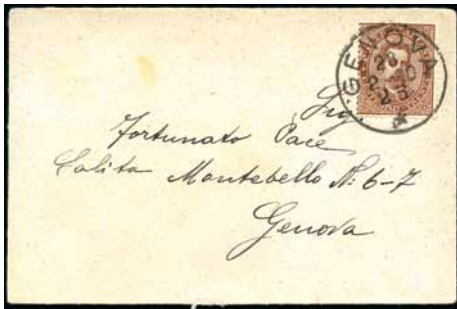 GENOVA
Sig.
Fortunato Pace
Salita Montebello N. 6-7
Genova